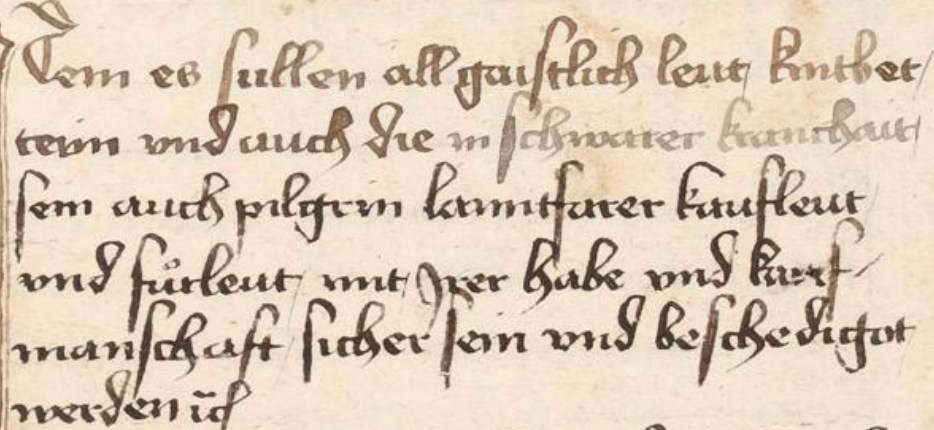 Item es sullen all gaistlich leut kintbet
terin vnd auch die in schwarer kranchait
sein auch pilgrin lanntfarer kaufleut
vnd fůrleut mit irer habe vnd kauf
manschaft sicher sein vnd beschedigot
werden